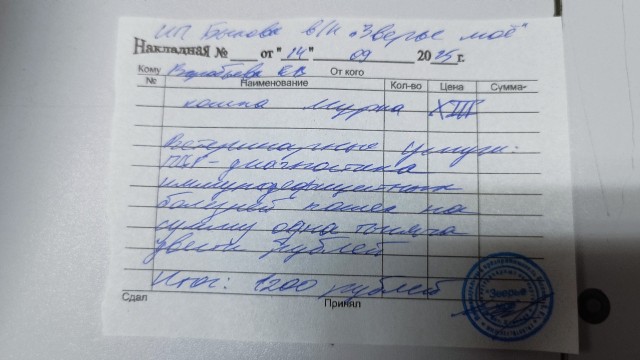 ИП Быкова в/к "Зверье моё"
Накладная № от "14" 09 2025 г.
Кому Воробьева Е В От кого
№ Наименование Кол-во Цена Сумма
кошка Мурка
Ветеринарные услуги:
ПЦР-диагностика
иммунодефицитных
болезней кошек на
сумму одна тысяча
двести рублей
Итог: 1200 рублей
Сдал Принял
"Зверье